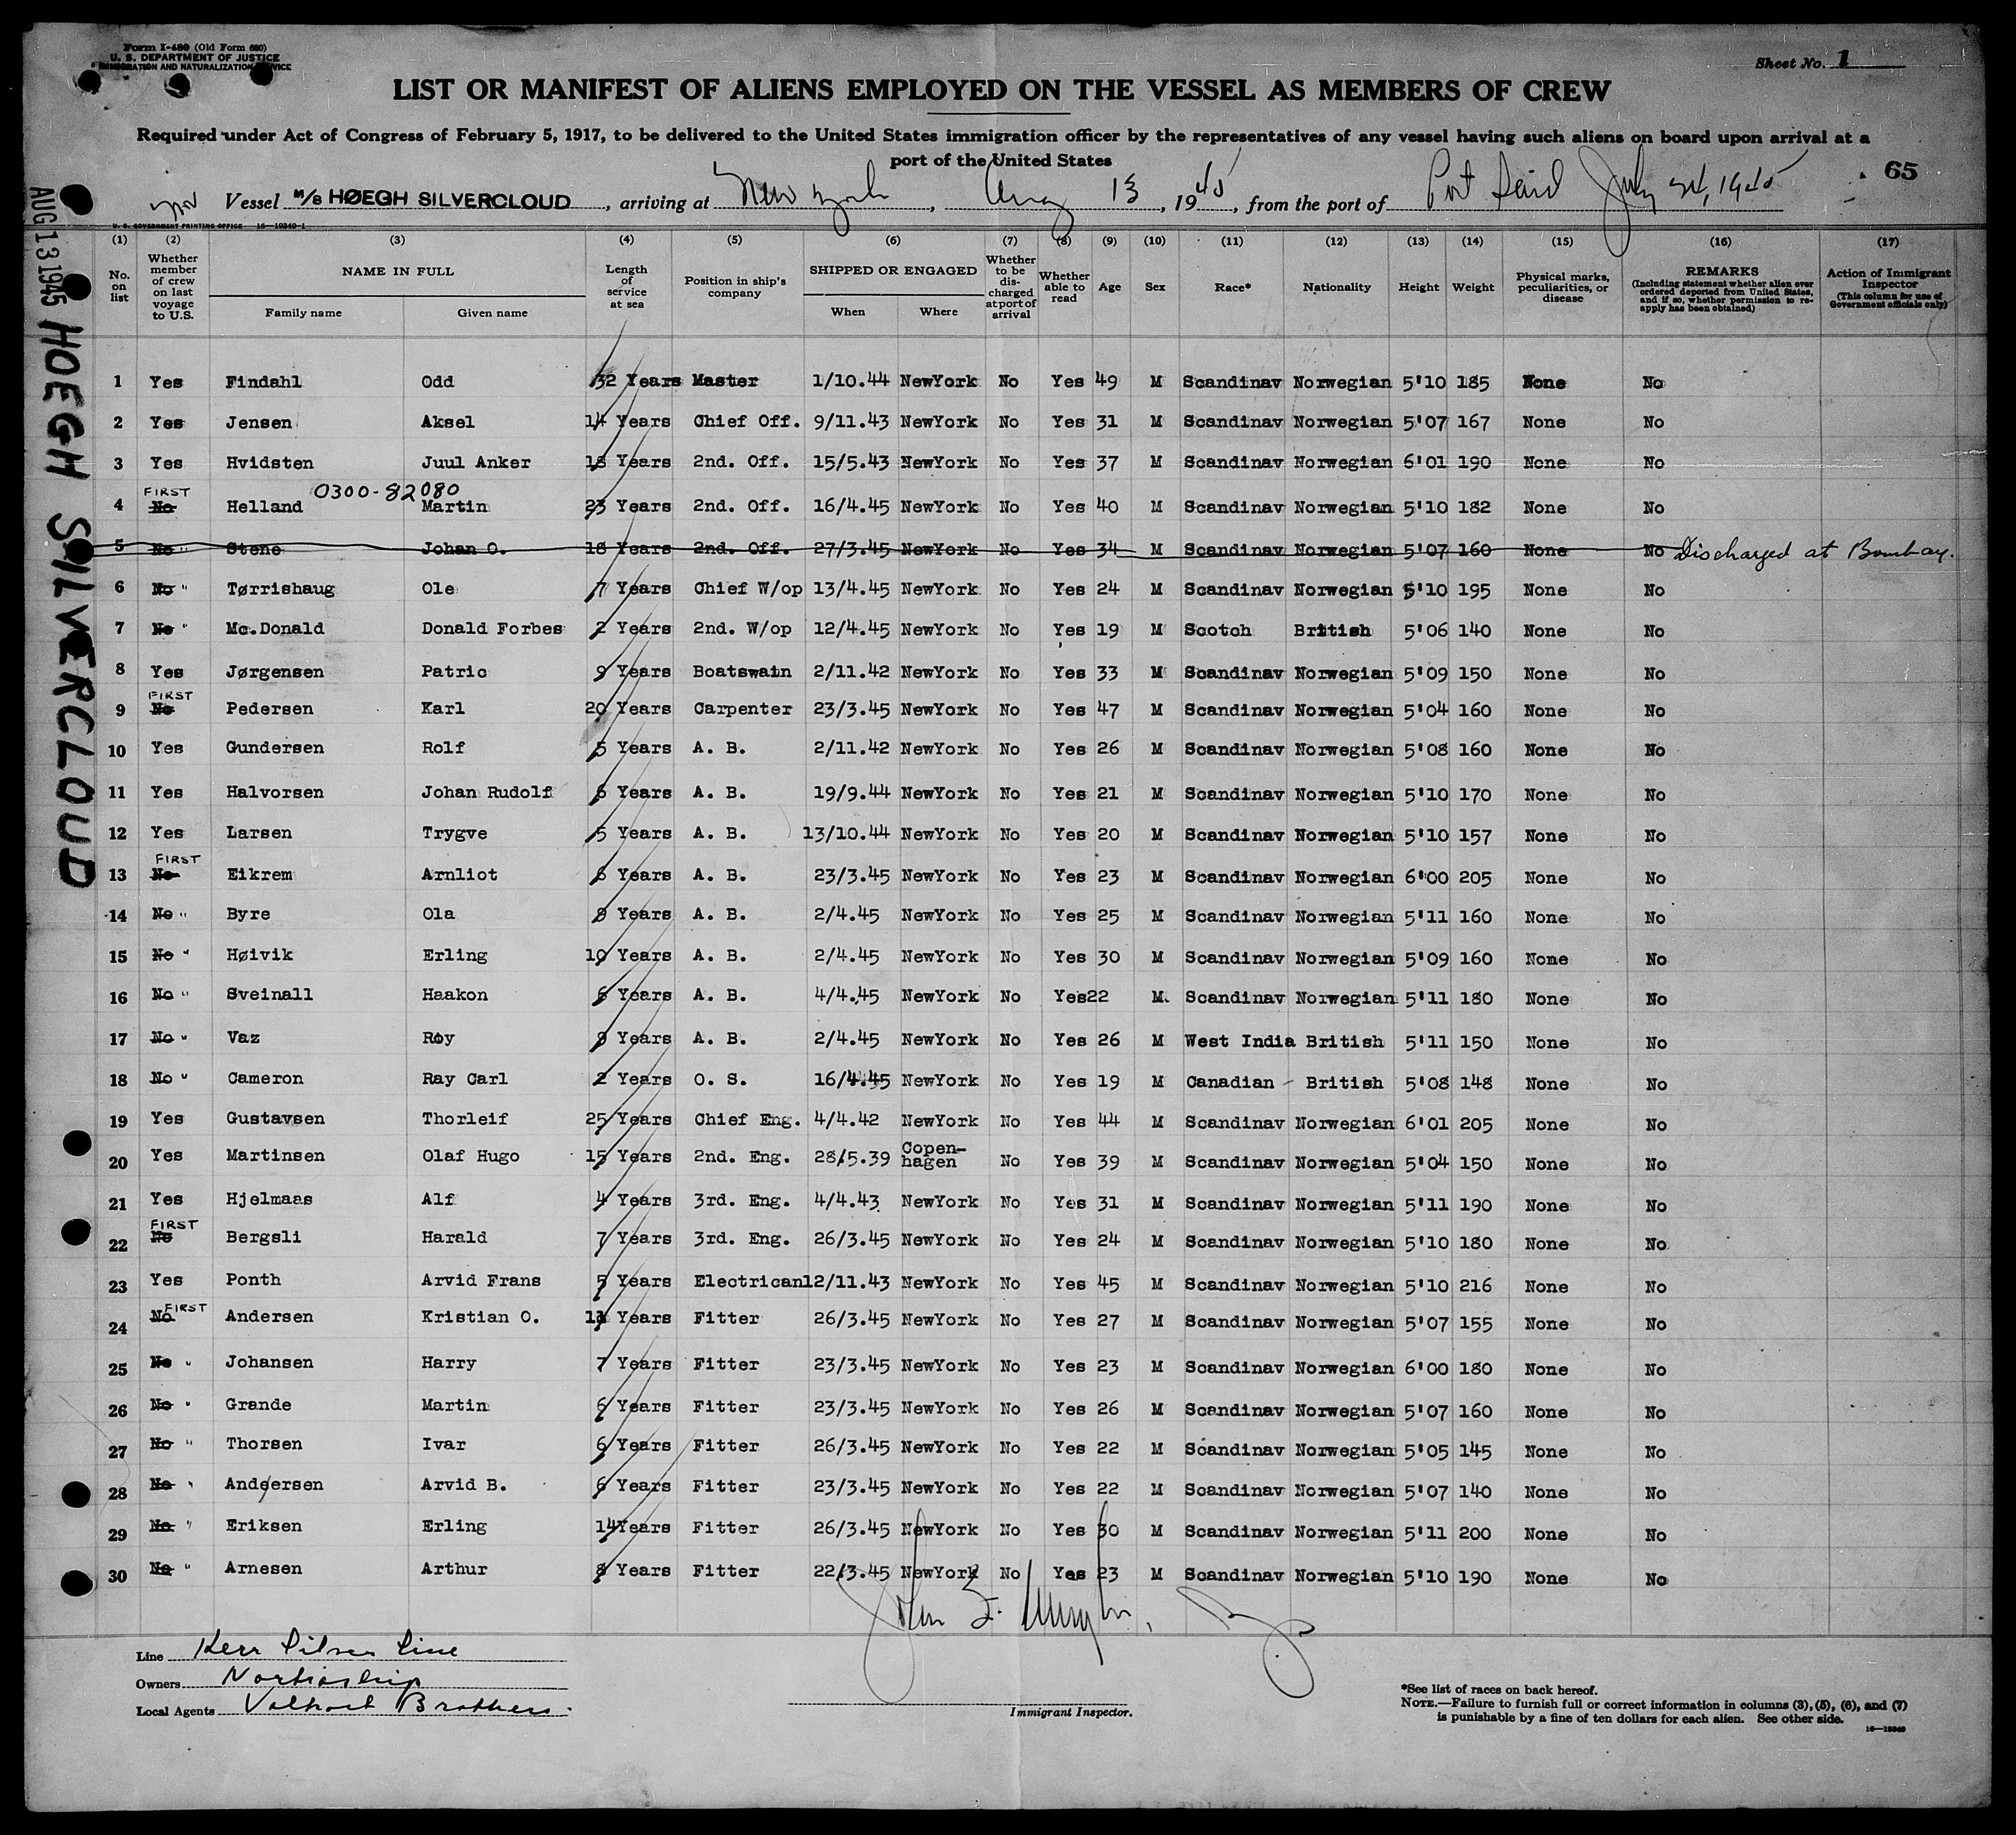 Form I-480 (Old Form 680)
U. S. DEPARTMENT OF JUSTICE
IMMIGRATION AND NATURALIZATION SERVICE
Sheet No. 1
LIST OR MANIFEST OF ALIENS EMPLOYED ON THE VESSEL AS MEMBERS OF CREW
Required under Act of Congress of February 5, 1917, to be delivered to the United States immigration officer by the representatives of any vessel having such aliens on board upon arrival at a
port of the United States
65
Nor Vessel M/S HØEGH SILVERCLOUD, arriving at New York, Aug 13, 1945, from the port of Port Said July 24, 1945
U. S. GOVERNMENT PRINTING OFFICE 16-19240-1
AUG 13 1945 HOEGH SILVERCLOUD
(1) (2) (3) (4) (5) (6) (7) (8) (9) (10) (11) (12) (13) (14) (15) (16) (17)
No. on list
Whether member of crew on last voyage to U.S.
NAME IN FULL
Family name Given name
Length of service at sea
Position in ship's company
SHIPPED OR ENGAGED
When Where
Whether to be discharged at port of arrival
Whether able to read
Age Sex Race* Nationality Height Weight
Physical marks, peculiarities, or disease
REMARKS
(Including statement whether alien ever ordered deported from United States, and if so, whether permission to reapply has been obtained)
Action of Immigrant Inspector
(This column for use of Government officials only)
1 Yes Findahl Odd 32 Years Master 1/10.44 NewYork No Yes 49 M Scandinav Norwegian 5'10 185 None No
2 Yes Jensen Aksel 14 Years Chief Off. 9/11.43 NewYork No Yes 31 M Scandinav Norwegian 5'07 167 None No
3 Yes Hvidsten Juul Anker 18 Years 2nd. Off. 15/5.43 NewYork No Yes 37 M Scandinav Norwegian 6'01 190 None No
FIRST 0300-82080
4 No Helland Martin 23 Years 2nd. Off. 16/4.45 NewYork No Yes 40 M Scandinav Norwegian 5'10 182 None No
5 No " Stene Johan O. 18 Years 2nd. Off. 27/3.45 NewYork No Yes 34 M Scandinav Norwegian 5'07 160 None No Discharged at Bombay.
6 No " Tørrishaug Ole 7 Years Chief W/op 13/4.45 NewYork No Yes 24 M Scandinav Norwegian 5'10 195 None No
7 No " Mc.Donald Donald Forbes 2 Years 2nd. W/op 12/4.45 NewYork No Yes 19 M Scotch British 5'06 140 None No
8 Yes Jørgensen Patric 9 Years Boatswain 2/11.42 NewYork No Yes 33 M Scandinav Norwegian 5'09 150 None No
FIRST
9 No Pedersen Karl 20 Years Carpenter 23/3.45 NewYork No Yes 47 M Scandinav Norwegian 5'04 160 None No
10 Yes Gundersen Rolf 5 Years A. B. 2/11.42 NewYork No Yes 26 M Scandinav Norwegian 5'08 160 None No
11 Yes Halvorsen Johan Rudolf 6 Years A. B. 19/9.44 NewYork No Yes 21 M Scandinav Norwegian 5'10 170 None No
12 Yes Larsen Trygve 5 Years A. B. 13/10.44 NewYork No Yes 20 M Scandinav Norwegian 5'10 157 None No
FIRST
13 No Eikrem Arnliot 6 Years A. B. 23/3.45 NewYork No Yes 23 M Scandinav Norwegian 6'00 205 None No
14 No " Byre Ola 9 Years A. B. 2/4.45 NewYork No Yes 25 M Scandinav Norwegian 5'11 160 None No
15 No " Høivik Erling 10 Years A. B. 2/4.45 NewYork No Yes 30 M Scandinav Norwegian 5'09 160 None No
16 No " Sveinall Haakon 6 Years A. B. 4/4.45 NewYork No Yes22 M. Scandinav Norwegian 5'11 180 None No
17 No " Vaz Roy 9 Years A. B. 2/4.45 NewYork No Yes 26 M West India British 5'11 150 None No
18 No " Cameron Ray Carl 2 Years O. S. 16/4.45 NewYork No Yes 19 M Canadian - British 5'08 148 None No
19 Yes Gustavsen Thorleif 25 Years Chief Eng. 4/4.42 NewYork No Yes 44 M Scandinav Norwegian 6'01 205 None No
20 Yes Martinsen Olaf Hugo 15 Years 2nd. Eng. 28/5.39 Copenhagen No Yes 39 M Scandinav Norwegian 5'04 150 None No
21 Yes Hjelmaas Alf 4 Years 3rd. Eng. 4/4.43 NewYork No Yes 31 M Scandinav Norwegian 5'11 190 None No
FIRST
22 No Bergsli Harald 7 Years 3rd. Eng. 26/3.45 NewYork No Yes 24 M Scandinav Norwegian 5'10 180 None No
23 Yes Ponth Arvid Frans 5 Years Electrican12/11.43 NewYork No Yes 45 M Scandinav Norwegian 5'10 216 None No
FIRST
24 No Andersen Kristian O. 11 Years Fitter 26/3.45 NewYork No Yes 27 M Scandinav Norwegian 5'07 155 None No
25 No " Johansen Harry 7 Years Fitter 23/3.45 NewYork No Yes 23 M Scandinav Norwegian 6'00 180 None No
26 No " Grande Martin 6 Years Fitter 23/3.45 NewYork No Yes 26 M Scandinav Norwegian 5'07 160 None No
27 No " Thorsen Ivar 6 Years Fitter 26/3.45 NewYork No Yes 22 M Scandinav Norwegian 5'05 145 None No
28 No " Andeersen Arvid B. 6 Years Fitter 23/3.45 NewYork No Yes 22 M Scandinav Norwegian 5'07 140 None No
29 No " Eriksen Erling 14Years Fitter 26/3.45 NewYork No Yes 30 M Scandinav Norwegian 5'11 200 None No
30 No " Arnesen Arthur 8 Years Fitter 22/3.45 NewYork No Yes 23 M Scandinav Norwegian 5'10 190 None No
Line Kerr Silver Line
Owners Nortraship
Local Agents Volkart Brothers.
Immigrant Inspector.
*See list of races on back hereof.
NOTE.—Failure to furnish full or correct information in columns (3), (5), (6), and (7)
is punishable by a fine of ten dollars for each alien. See other side.
16—19240